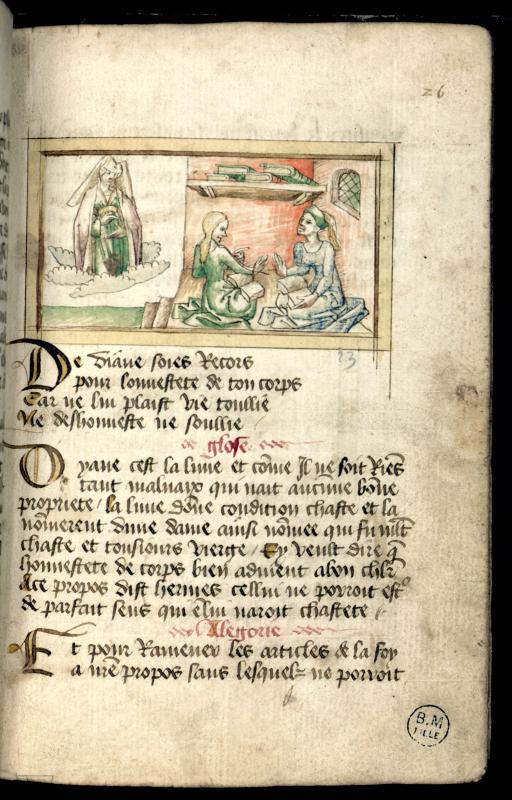 26
23
De diane soies Recors
pour lonnestete de ton corps
Car ne lui plaist vie toullie
Ne deshonneste ne soullie
glose
Dyane cest la lune et cõme Il ne soit Riẽs
tant malvaix qui nait aucune bõne
propriete / la lune dõne condition chaste et la
nõmerent dune dame ainsi nõmee qui fu mlt
chaste et tousiours vierge / Sy veult dire q̃
honnestete de corps bien advient a bon chlr
A ce propos dist hermes cellui ne porroit estˢ
de parfait sens qui e lui naroit chastete /
Alegorie
Et pour Ramener les articles de la foy
a nr̃e propos sans lesquelz ne porroit
B.M
LILLE